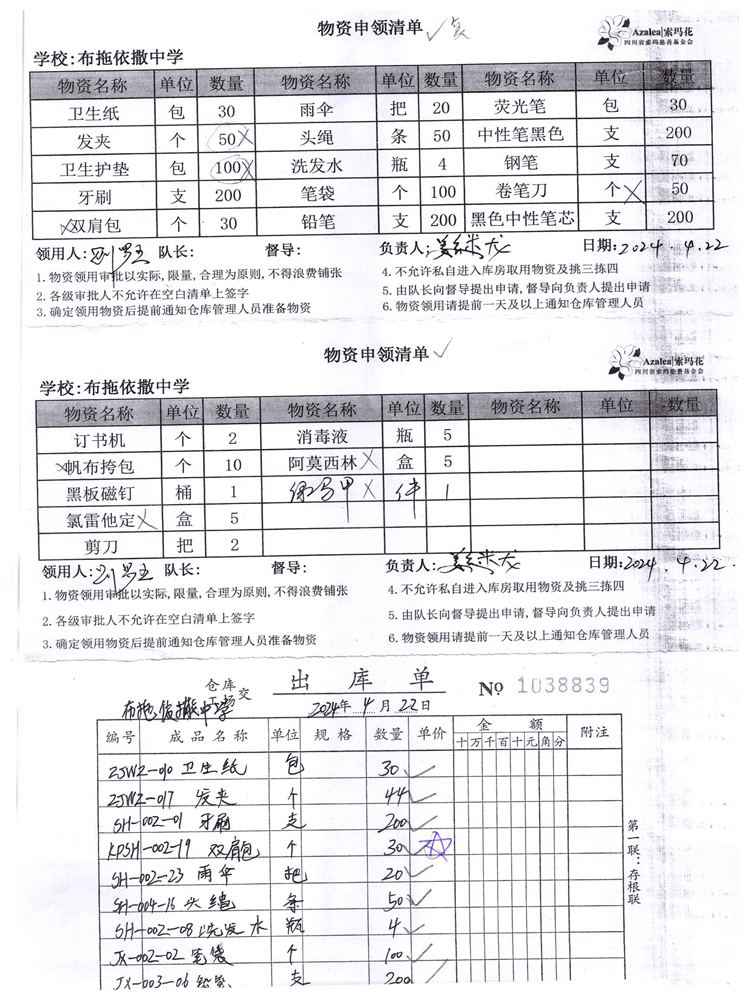 物资申领清单
Azalea|索玛花
四川省索玛慈善基金会
学校:布拖依撒中学
物资名称 单位 数量 物资名称 单位 数量 物资名称 单位 数量
卫生纸 包 30 雨伞 把 20 荧光笔 包 30
发夹 个 50 头绳 条 50 中性笔黑色 支 200
卫生护垫 包 100 洗发水 瓶 4 钢笔 支 70
牙刷 支 200 笔袋 个 100 卷笔刀 个 50
双肩包 个 30 铅笔 支 200 黑色中性笔芯 支 200
领用人: 队长: 督导: 负责人: 日期:2024.4.22
1.物资领用审批以实际,限量,合理为原则,不得浪费铺张 4.不允许私自进入库房取用物资及挑三拣四
2.各级审批人不允许在空白清单上签字 5.由队长向督导提出申请,督导向负责人提出申请
3.确定领用物资后提前通知仓库管理人员准备物资 6.物资领用请提前一天及以上通知仓库管理人员
物资申领清单
Azalea|索玛花
四川省索玛慈善基金会
学校:布拖依撒中学
物资名称 单位 数量 物资名称 单位 数量 物资名称 单位 数量
订书机 个 2 消毒液 瓶 5
帆布挎包 个 10 阿莫西林 盒 5
黑板磁钉 桶 1 绿马甲 件 1
氯雷他定 盒 5
剪刀 把 2
领用人: 队长: 督导: 负责人: 日期:2024.4.22
1.物资领用审批以实际,限量,合理为原则,不得浪费铺张 4.不允许私自进入库房取用物资及挑三拣四
2.各级审批人不允许在空白清单上签字 5.由队长向督导提出申请,督导向负责人提出申请
3.确定领用物资后提前通知仓库管理人员准备物资 6.物资领用请提前一天及以上通知仓库管理人员
出库单 № 1038839
仓库 交
布拖依撒中学 2024年4月22日
编号 成品名称 单位 规格 数量 单价 金额 附注
十万千百十元角分
ZJWZ-010 卫生纸 包 30
ZJWZ-017 发夹 个 44
SH-002-01 牙刷 支 200
KPSH-002-19 双肩包 个 30
SH-002-23 雨伞 把 20
SH-004-16 头绳 条 50
SH-002-08 洗发水 瓶 4
JX-002-02 笔袋 个 100
JX-003-06 铅笔 支 200
第一联:存根联